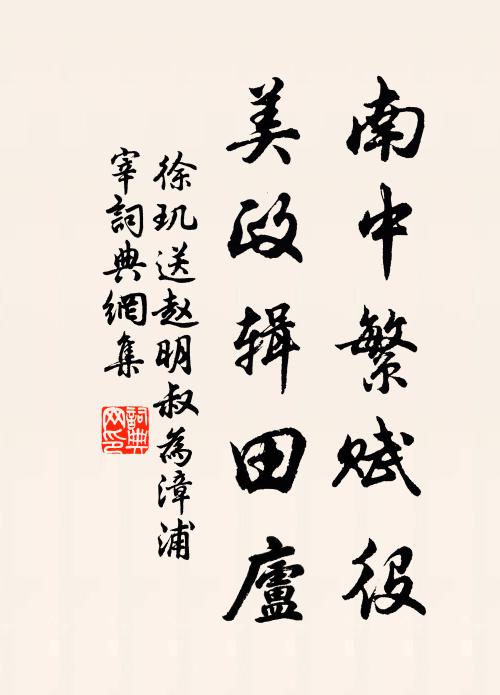 南中繁赋役
美政辑田廬
徐玑送赵明叔為漳浦
宰詞典網集
詞典
网印